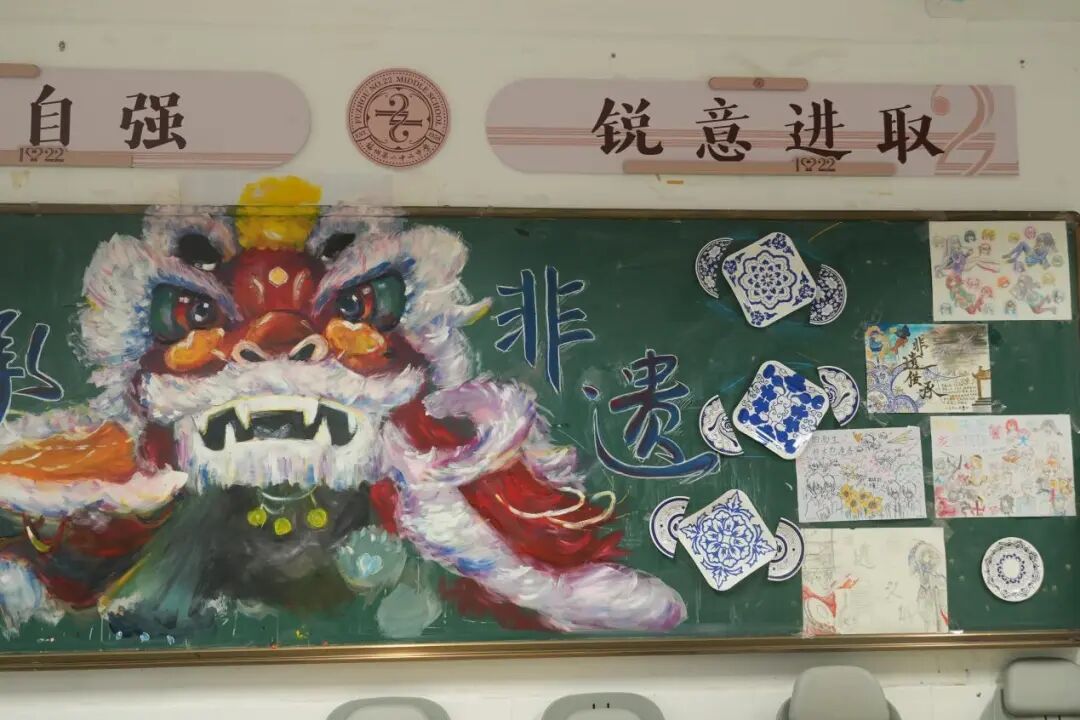 自强
1922
FUZHOU NO.22 MIDDLE SCHOOL
福州第二十二中学
锐意进取
1922
承
非
遗
非
遗传承